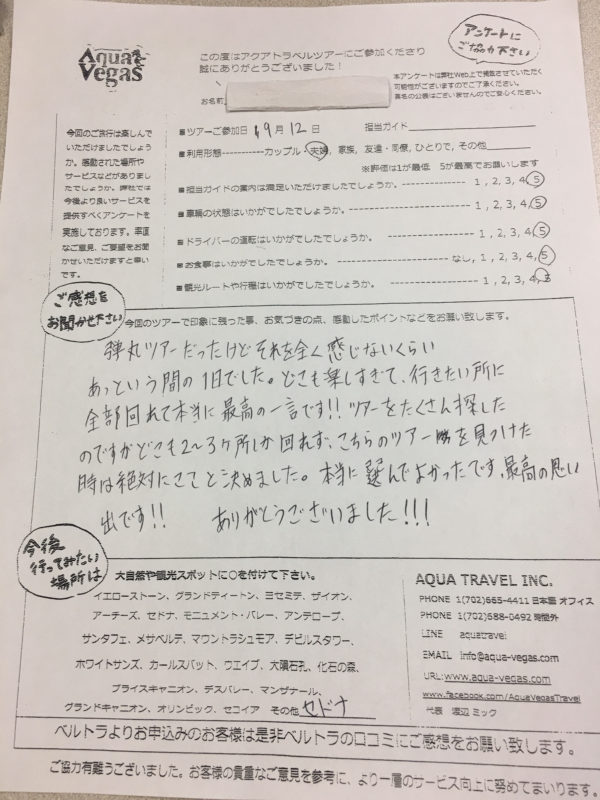 Aqua Vegas
この度はアクアトラベルツアーにご参加くださり
誠にありがとうございました！
アンケートに
ご協力下さい
本アンケートは弊社Web上で掲載させていただく
可能性がございますのでご了承ください。
真名の公表はございませんのでご安心ください。
お名前
今回のご旅行は楽しんで
いただけましたでしょう
か。感動された場所や
サービスなどがありまし
たでしょうか。弊社では
今後より良いサービスを
提供すべくアンケートを
実施しております。率直
なご意見、ご要望をお聞
かせいただけますと幸い
です。
■ツアーご参加日 19月12日 担当ガイド
■利用形態-----------カップル・夫婦, 家族, 友達・同僚, ひとりで, その他
※評価は1が最低 5が最高でお願いします
■担当ガイドの案内は満足いただけましたでしょうか。---------------- 1 , 2, 3, 4, 5
■車輌の状態はいかがでしたでしょうか。---------------- 1 , 2, 3, 4, 5
■ドライバーの運転はいかがでしたでしょうか。---------------- 1 , 2, 3, 4, 5
■お食事はいかがでしたでしょうか。---------------- なし, 1 , 2, 3, 4, 5
■観光ルートや行程はいかがでしたでしょうか。---------------- 1 , 2, 3, 4, 5
ご感想を
お聞かせ下さい
今回のツアーで印象に残った事、お気づきの点、感動したポイントなどをお願い致します。
弾丸ツアーだったけどそれを全く感じないくらい
あっという間の1日でした。どこも楽しすぎて、行きたい所に
全部回れて本当に最高の一言です!! ツアーをたくさん探した
のですがどこも2~3ヶ所しか回れず、こちらのツアーを見つけた
時は絶対にここと決めました。本当に選んでよかったです、最高の思い
出です!! ありがとうございました!!!
今後
行ってみたい
場所は
大自然や観光スポットに○を付けて下さい。
イエローストーン、グランドティートン、ヨセミテ、ザイオン、
アーチーズ、セドナ、モニュメント・バレー、アンテロープ、
サンタフェ、メサベルデ、マウントラシュモア、デビルスタワー、
ホワイトサンズ、カールスバット、ウエイブ、大隕石孔、化石の森、
ブライスキャニオン、デスバレー、マンザナール、
グランドキャニオン、オリンピック、セコイア その他 セドナ
AQUA TRAVEL INC.
PHONE 1(702)665-4411 日本語 オフィス
PHONE 1(702)688-0492 時間外
LINE aquatravel
EMAIL info@aqua-vegas.com
URL:www.aqua-vegas.com
www.facebook.com/AquaVegasTravel
代表 渡辺 ミック
ベルトラよりお申込みのお客様は是非ベルトラの口コミにご感想をお願い致します。
ご協力有難うございました。お客様の貴重なご意見を参考に、より一層のサービス向上に努めてまいります。